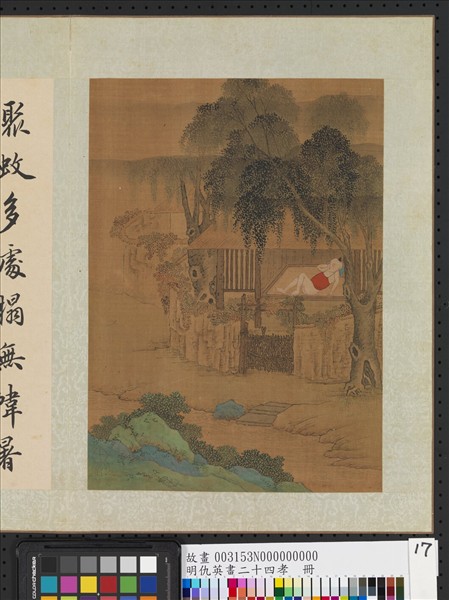 聚蚊多處榻無幃暑
17
故畫 003153N000000000
明仇英畫二十四孝 冊
colorchecker